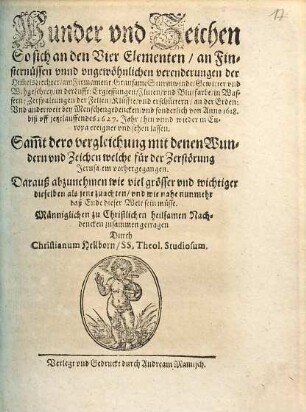 17
Wunder vnd Zeichen
So sich an den Vier Elementen / an Fin-
sternüssen vnnd vngewöhnlichen verenderungen der
Himelszeichen / am Firmament Grausame Sturmwinde / Gewitter vnd
Wehgeschrey in der Lufft: Ergiessungen / Zeittere vnd Blutfarbe im Was-
sern: Zerspaltungen der Felsen / Klüffte vnd erschüttern / an der Erden:
Vnd anderweit bey Menschengedencken vnd sonderlich von Anno 1618.
biß off jetzlauffendes 1627. Jahr / hin vnnd wieder in Eu-
ropa ereignet vnd sehen lassen.
Sam̃t dero vergleichung mit denen Wun-
dern vnd Zeichen welche für der Zerstörung
Jerusalem vorhergegangen.
Darauß abzunehmen wie viel grösser vnd wichtiger
dieselben als jene zu achten / vnd wie nahe nunmehr
daß Ende dieser Welt sein müsse.
Männiglichen zu Christlichen heilsamen Nach-
dencken zusammen getragen
Durch
Christianum Heilborn / SS. Theol. Studiosum.
Verlegt vnd Gedruckt durch Andream Mamitzsch.